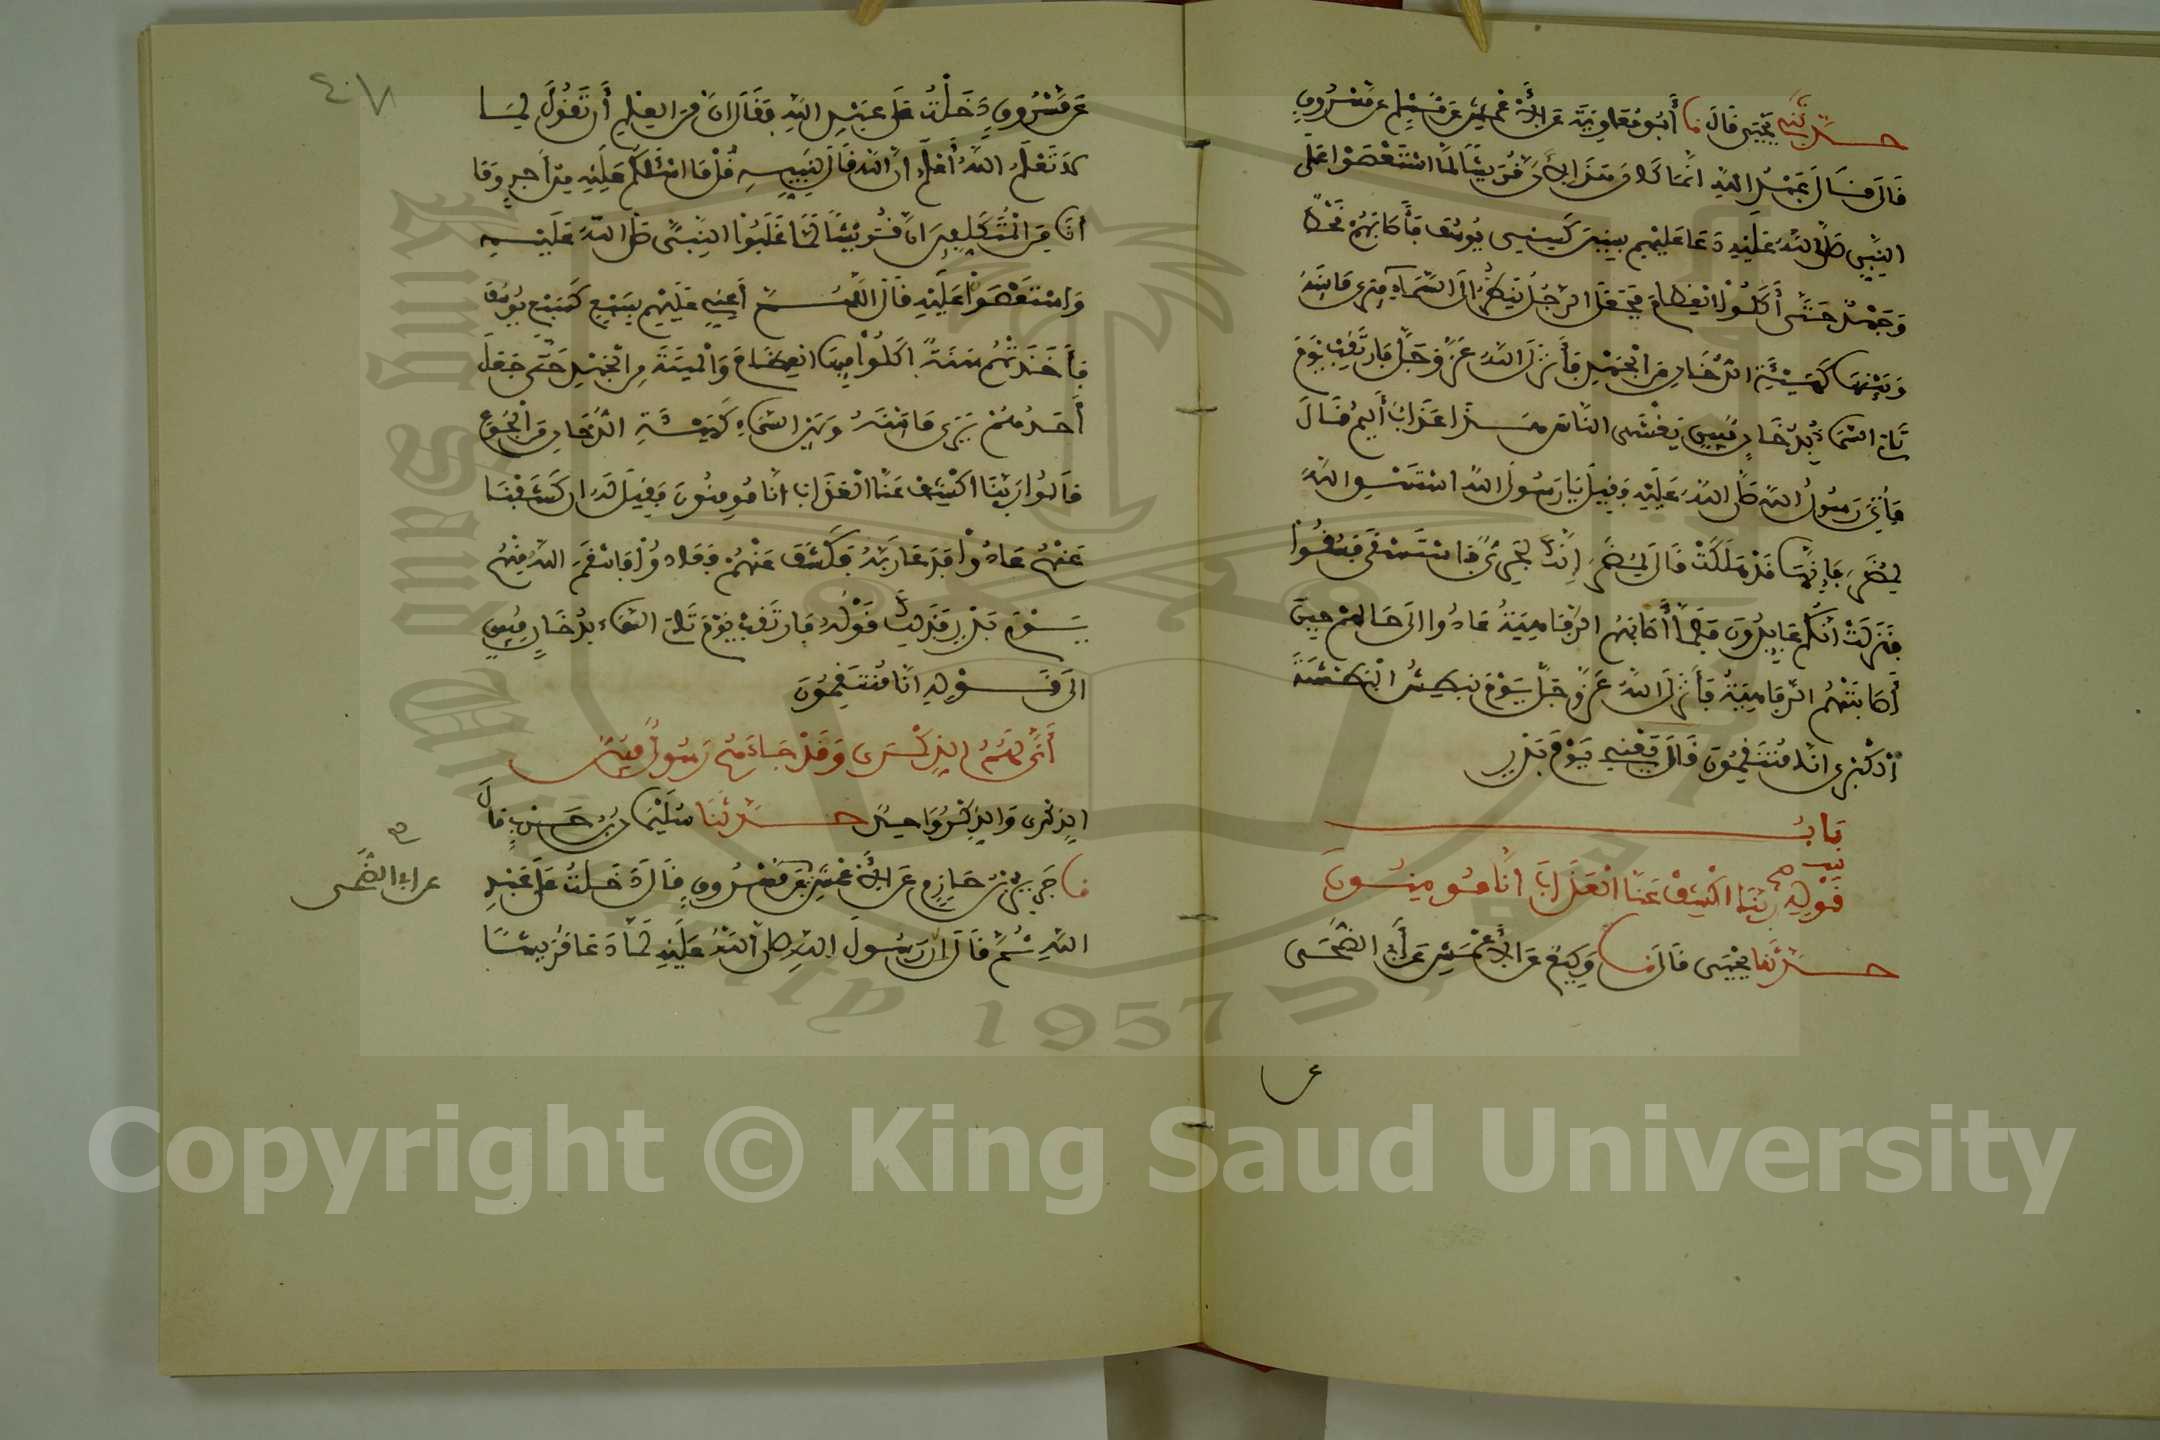 حدثنا يحيى قال نا أبو معاوية عن الأعمش عن مسلم عن مسروق
قال قال عبد الله إنما كان هذا لأن قريشا لما استعصوا على
النبي صلى الله عليه دعا عليهم بسنين كسني يوسف فأصابهم قحط
وجهد حتى أكلوا العظام فجعل الرجل ينظر إلى السماء فيرى ما بينه
وبينها كهيئة الدخان من الجهد فأنزل الله عز وجل فارتقب يوم
تأتي السماء بدخان مبين يغشى الناس هذا عذاب أليم قال
فأتي رسول الله صلى الله عليه وقيل يا رسول الله استسق الله
لمضر فإنها قد هلكت قال لمضر إنك لجريء فاستسقى فسقوا
فنزلت إنكم عايدون فلما أصابتهم الرفاهية عادوا إلى حالهم حين
أصابتهم الرفاهية فأنزل الله عز وجل يوم نبطش البطشة
الكبرى إنا منتقمون قال يعني يوم بدر
باب
قوله ربنا اكشف عنا العذاب إنا مومنون
حدثنا يحيى قال نا وكيع عن الأعمش عن أبي الضحى
ع
٤٠٧
عن مسروق دخلت على عبد الله فقال إن من العلم أن تقول لما
لا تعلم الله أعلم إن الله قال لنبيه قل ما أسئلكم عليه من أجر وما
أنا من المتكلفين إن قريشا لما غلبوا النبي صلى الله عليه
واستعصوا عليه قال اللهم أعني عليهم بسبع كسبع يوسف
فأخذتهم سنة أكلوا فيها العظام والميتة من الجهد حتى جعل
أحدهم يرى ما بينه وبين السماء كهيئة الدخان من الجوع
قالوا ربنا اكشف عنا العذاب إنا مومنون فقيل له إن كشفنا
عنهم عادوا فدعا ربه فكشف عنهم فعادوا فانتقم الله منهم
يوم بدر فذلك قوله فارتقب يوم تأتي السماء بدخان مبين
إلى قوله إنا منتقمون
أنى لهم الذكرى وقد جاءهم رسول مبين
الذكرى والذكر واحد حدثنا سليمان بن حرب قال
نا جرير بن حازم عن الأعمش عن مسروق قال دخلت على عبد
عن أبي الضحى
الله ثم قال إن رسول الله صلى الله عليه لما دعا قريشا
Copyright © King Saud University
King Saud University
1957